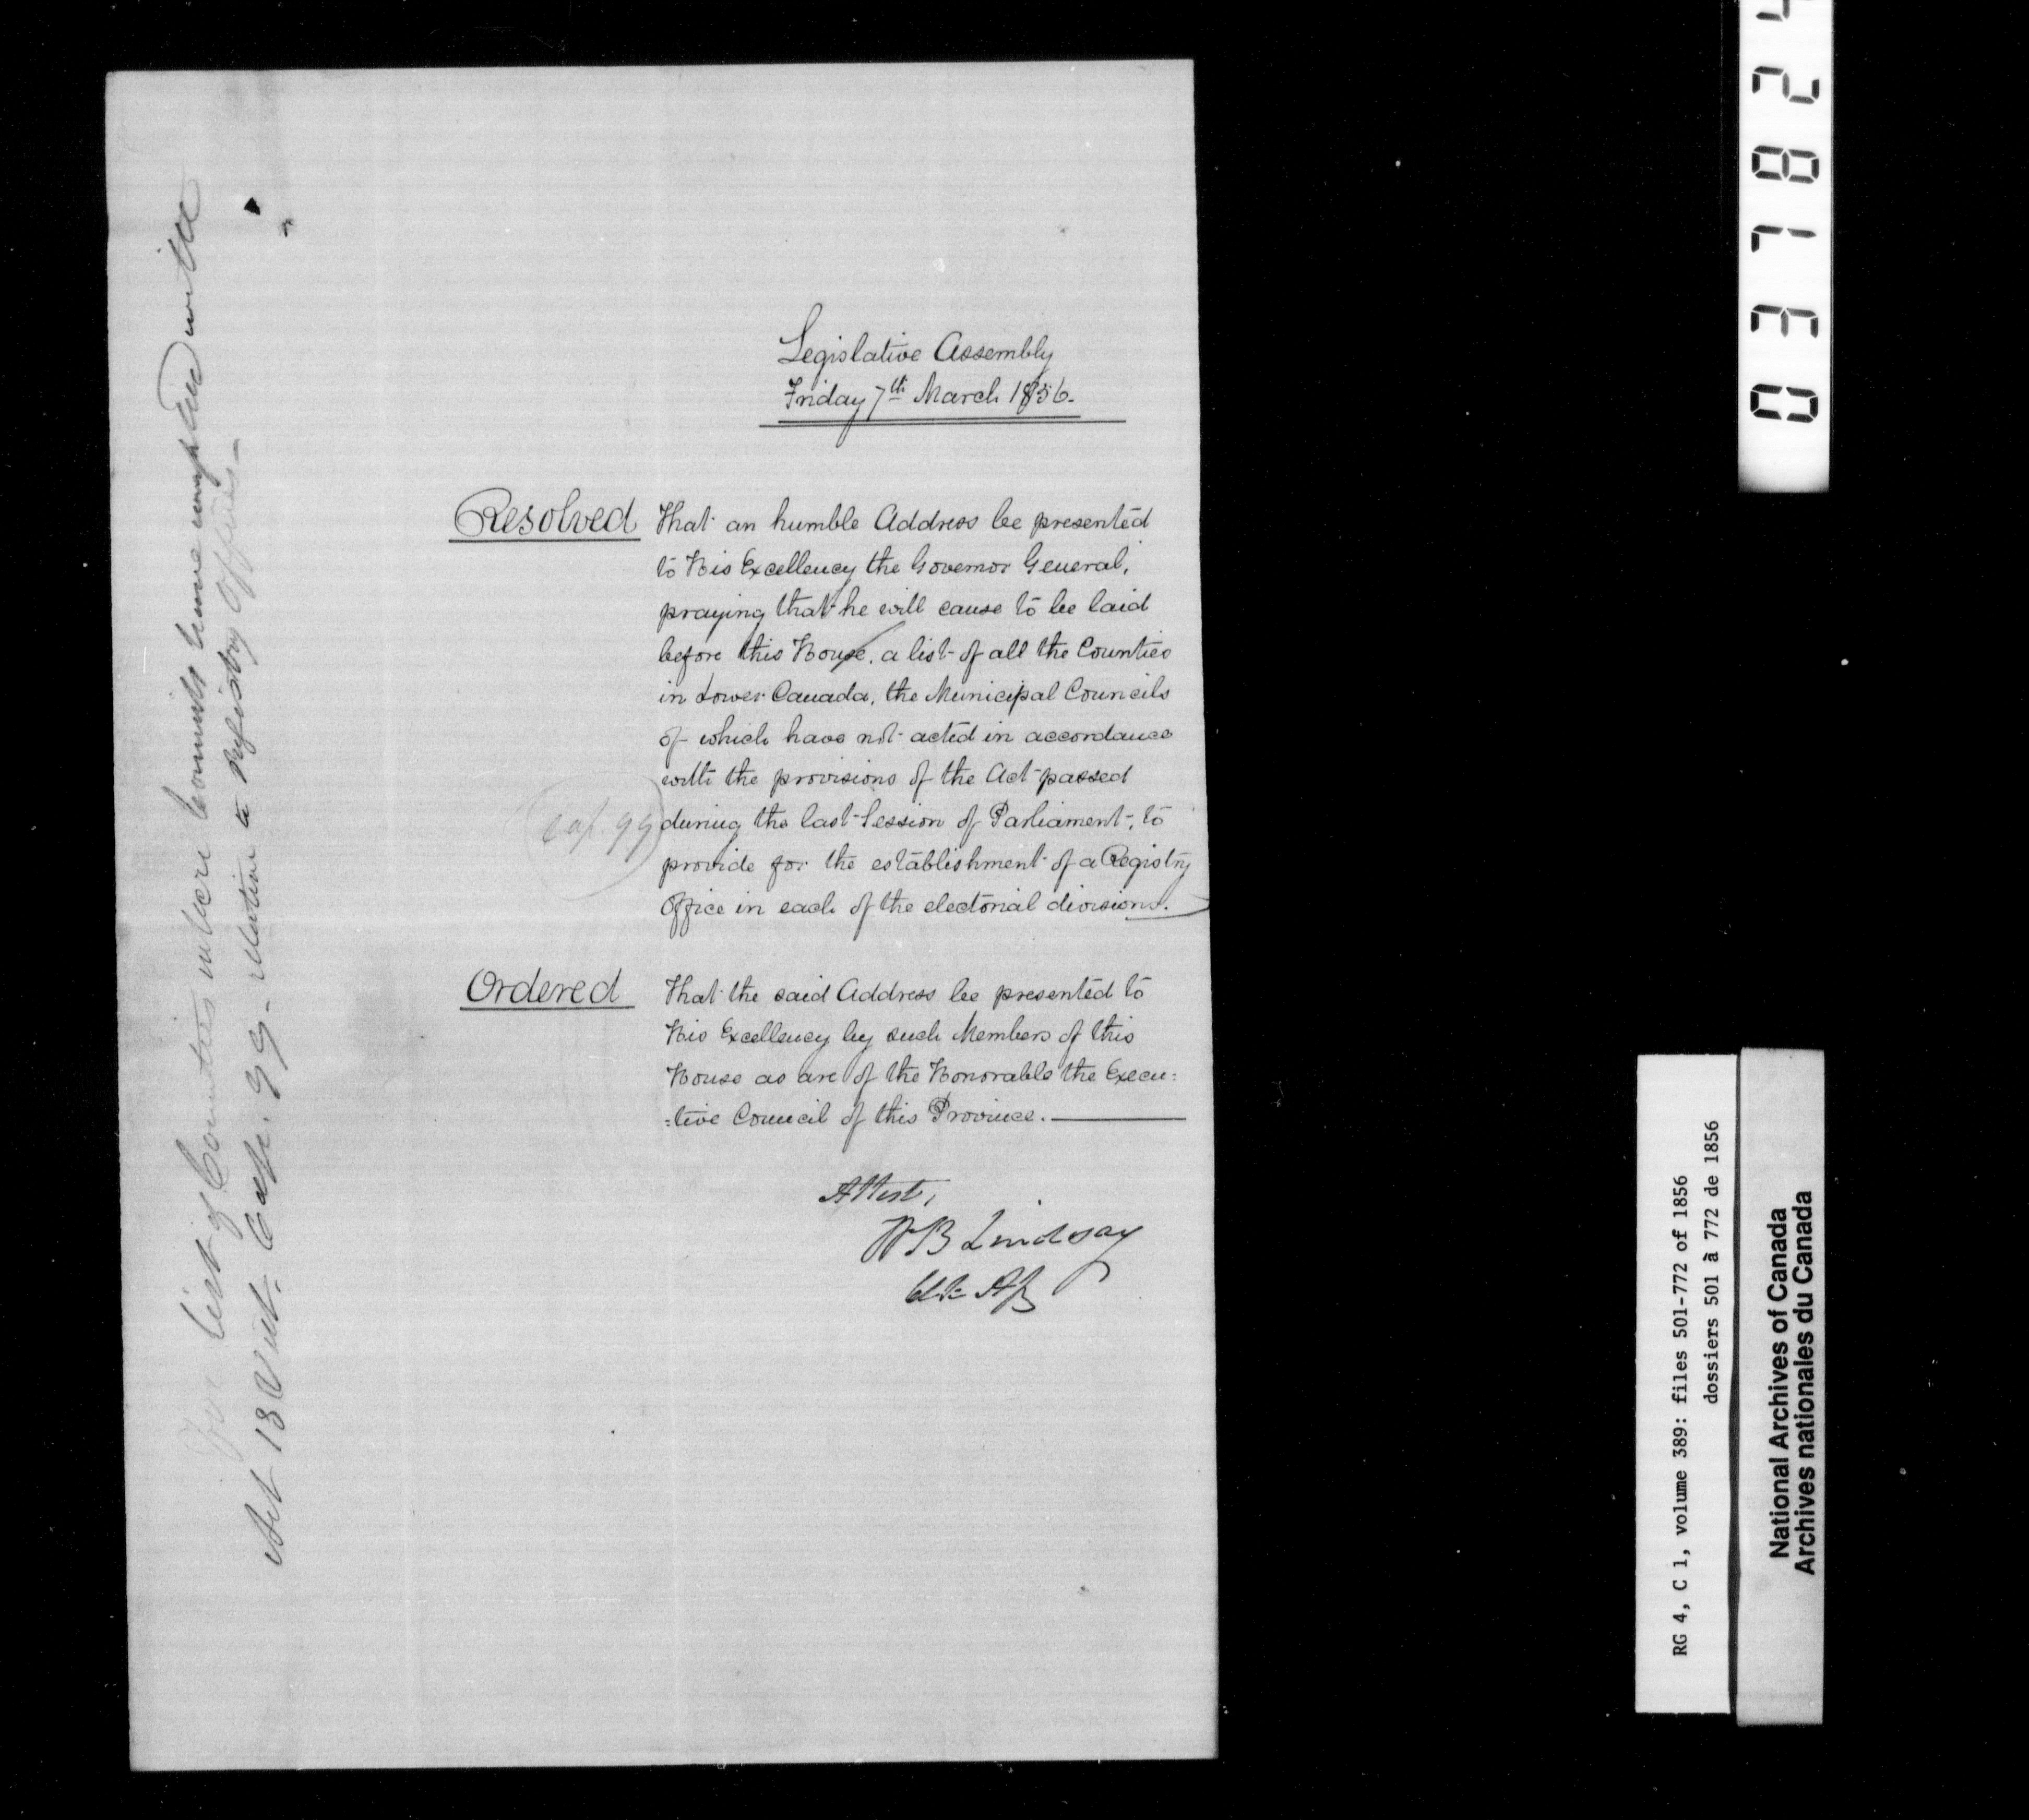 Legislative Assembly
Friday 7th March 1856.
Resolved That an humble Address be presented
to His Excellency the Governor General,
praying that he will cause to be laid
before this House, a list of all the Counties
in Lower Canada, the Municipal Councils
of which have not acted in accordance
with the provisions of the Act passed
Cap. 99 during the last Session of Parliament, to
provide for the establishment of a Registry
Office in each of the electorial divisions.
Ordered That the said Address be presented to
His Excellency by such Members of this
House as are of the Honorable the Execu:
:tive Council of this Province.
Attest,
WB Lindsay
Clk Ass
For list of Counties where Councils have complied with
Act 18 Vict. Cap. 99. relative to Registry Offices-
037824
RG 4, C 1, volume 389: files 501-772 of 1856
dossiers 501 à 772 de 1856
National Archives of Canada
Archives nationales du Canada